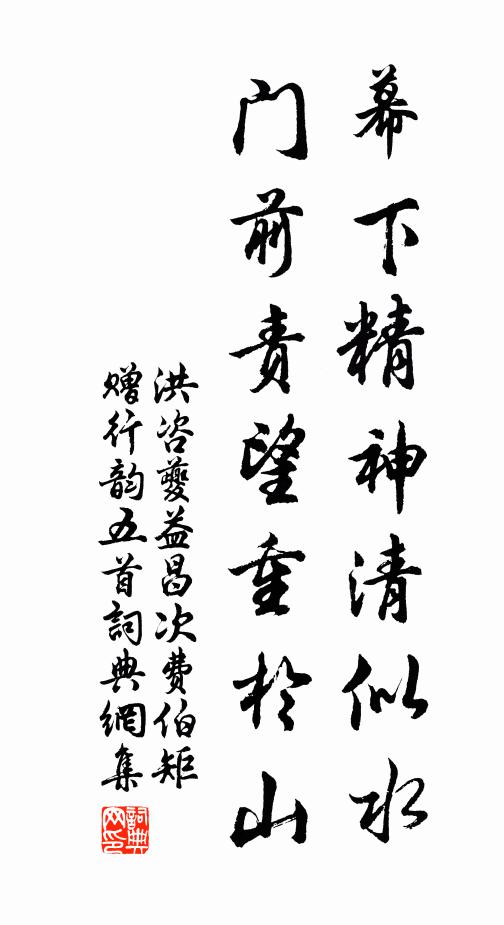 幕下精神清似水
门前责望重於山
洪咨夔益昌次费伯矩
赠行韵五首詞典網集
詞典
网印